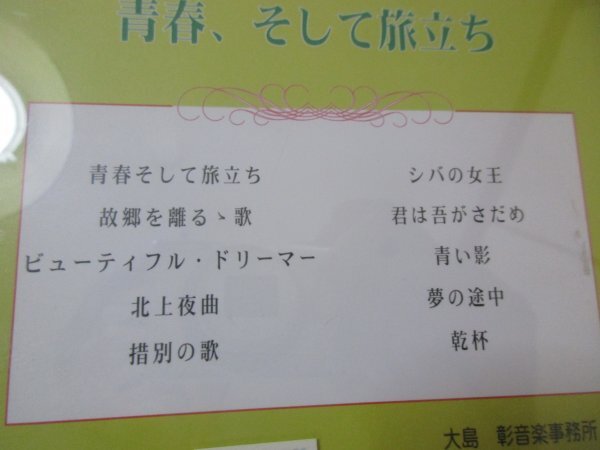 青春、そして旅立ち
青春そして旅立ち
故郷を離るゝ歌
ビューティフル・ドリーマー
北上夜曲
措別の歌
シバの女王
君は吾がさだめ
青い影
夢の途中
乾杯
大島 彰音楽事務所